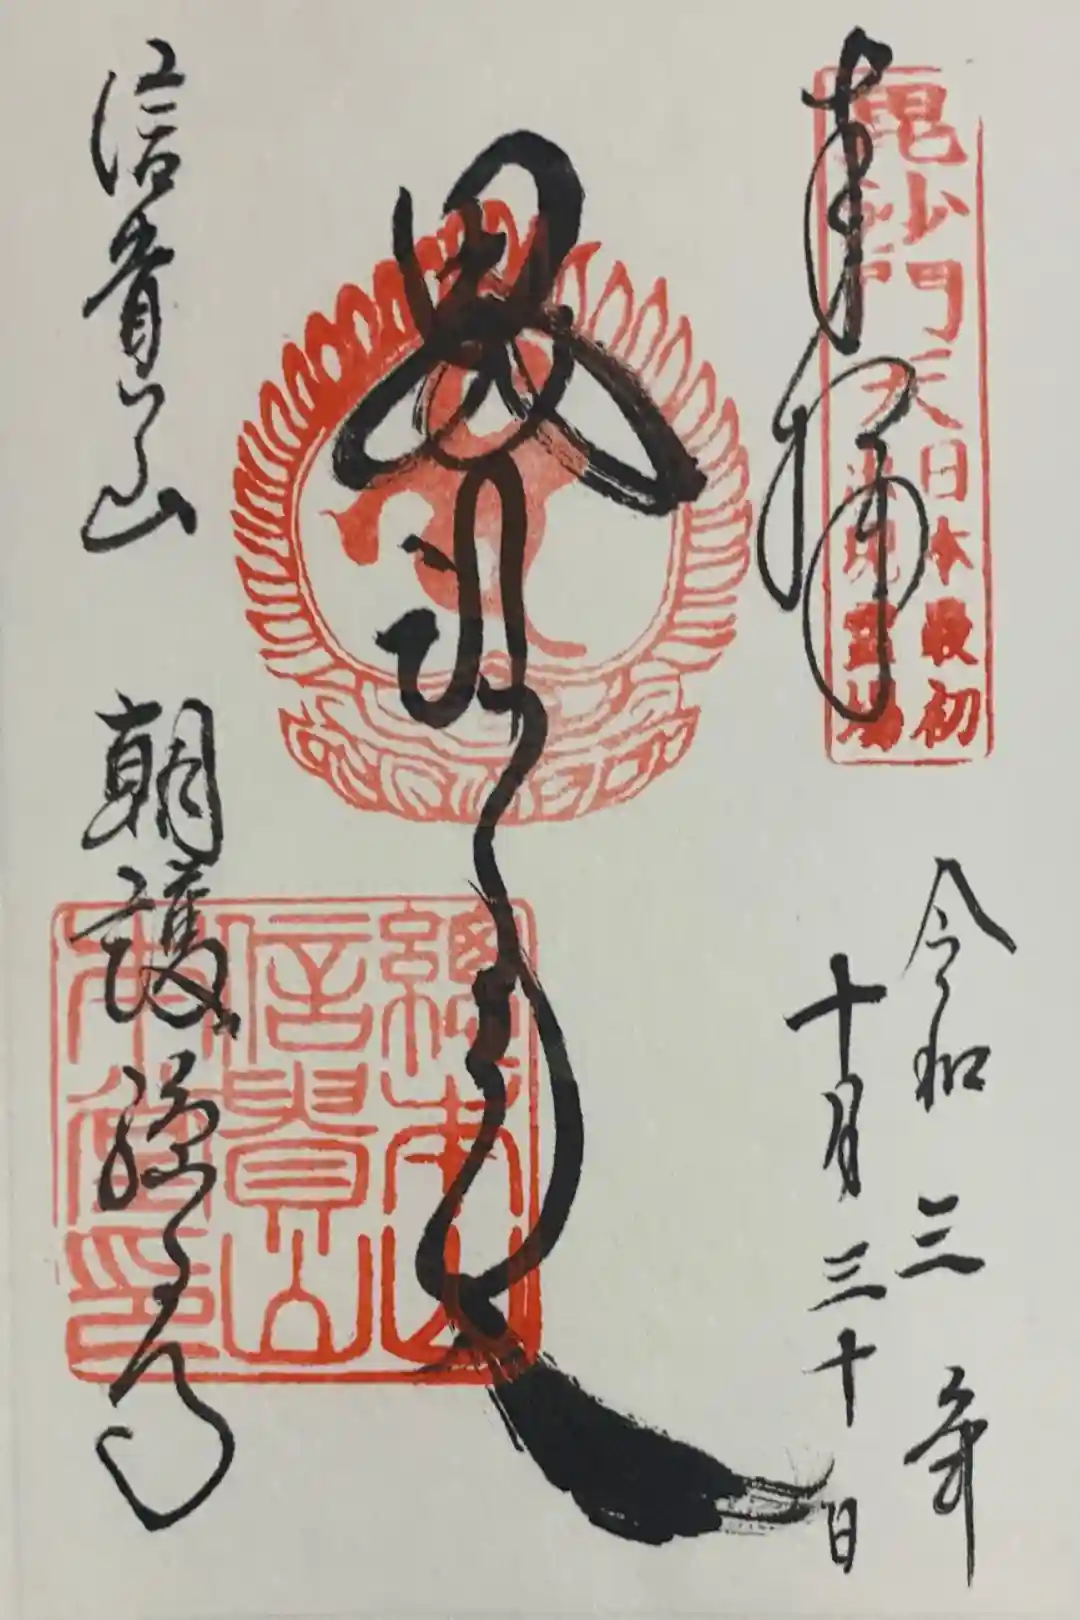 奉拝
毘沙門天
日本最初
出現霊場
令和三年
十月三十日
毘沙門天
總本山
信貴山
信貴山
朝護孫子寺